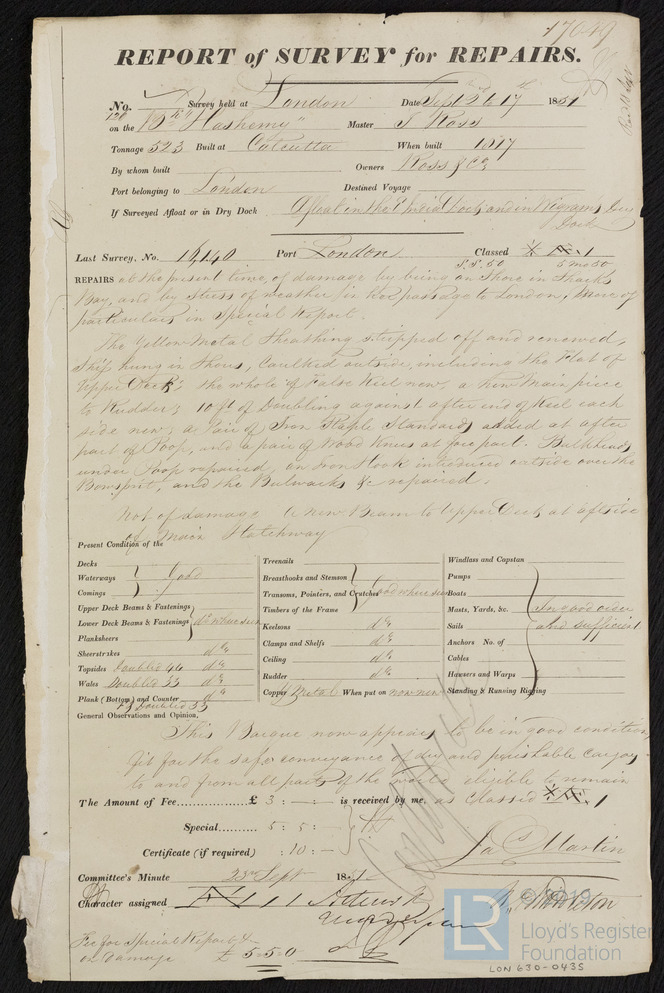 17049
REPORT of SURVEY for REPAIRS.
No. Survey held at London Date Sept 2d to 17th 1851
on the "Hashemy" Master J Ross
Tonnage 523 Built at Calcutta When built 1817
By whom built Owners Ross & Co
Port belonging to London Destined Voyage
If Surveyed Afloat or in Dry Dock Afloat in the E India Docks and in Wigrams Dry
Dock
Last Survey, No. 16,140 Port London Classed Æ 1
S.S. 50 5 mo 50
REPAIRS at the present time, of damage by being on Shore in
Bay, and by stress of weather in her passage to London, more of
particulars in Special Report.
The Yellow Metal Sheathing stripped off and renewed,
Ship hung in Shores, Caulked outside, including the Flat of
Upper Deck; the whole of False Keel new, a new Main piece
to Rudder; 10 ft of Doubling against after end of Keel each
side new; a Pair of Iron Staple Standards added at after
part of Poop, and a pair of Wood Knees at fore part. Bulkheads
under Poop repaired, an Iron Hook introduced outside over the
Bowsprit, and the Bulwarks &c repaired.
Not of damage A new Beam to Upper Deck at aftside
of Main Hatchway
Present Condition of the
Decks
Waterways Good
Comings
Upper Deck Beams & Fastenings
Lower Deck Beams & Fastenings do where seen
Planksheers
Sheerstrakes do
Topsides Doubled 46 do
Wales Doubled 33 do
Plank (Bottom) and Counter do
Doubled 33
Treenails
Breasthooks and Stemson
Transoms, Pointers, and Crutches Good where seen
Timbers of the Frame
Keelsons do
Clamps and Shelfs do
Ceiling do
Rudder do
Copper Metal When put on now new
Windlass and Capstan
Pumps
Boats
Masts, Yards, &c. In good order
Sails and sufficient
Anchors No. of
Cables
Hawsers and Warps
Standing & Running Rigging
General Observations and Opinion,
This Barque now appears to be in good condition,
fit for the safe conveyance of dry and perishable cargoes
to and from all parts of the world eligible to remain
The Amount of Fee £ 3 : — : — is received by me, as Classed Æ 1
Special 5 : 5 : —
Certificate (if required) : 10 : —
Jas Martin
Committee's Minute 23rd Sept 1851
Character assigned Æ 1
Fee for Special Report &
on Damage £ 5-5-0
LR
Lloyd's Register
Foundation
LON 630-0435